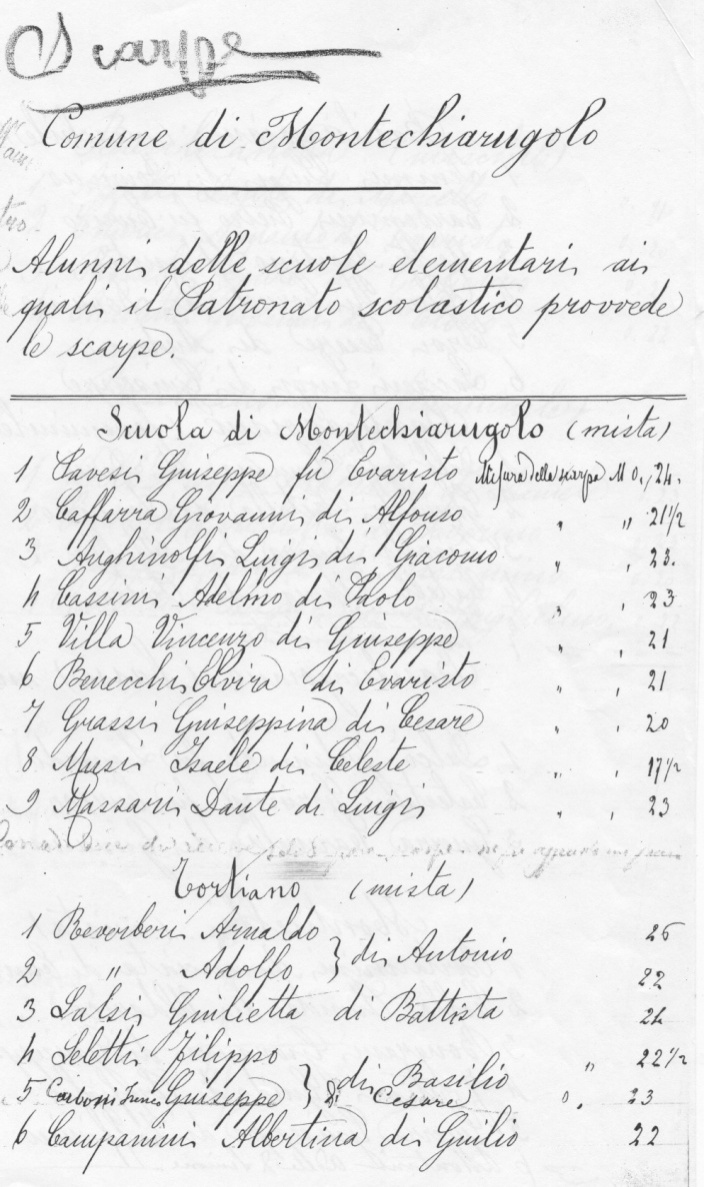 Scarpe
Comune di Montechiarugolo
Alunni delle scuole elementari ai
quali il Patronato scolastico provvede
le scarpe.
Scuola di Montechiarugolo (mista)
1 Pavesi Guiseppe fu Evaristo Misura della scarpa M 0,, 24.
2 Caffarra Giovanni di Alfonso " " 21 1/2
3 Anghinolfi Luigi di Giacomo " , 23.
4 Cassini Adelmo di Paolo " , 23
5 Villa Vincenzo di Guiseppe " , 21
6 Benecchi Elvira di Evaristo " , 21
7 Grassi Guiseppina di Cesare " , 20
8 Musi Isaele di Celeste " , 17 1/2
9 Massari Dante di Luigi " , 23
Tortiano (mista)
1 Reverberi Arnaldo } di Antonio 26
2 " Adolfo 22
3 Salsi Guilietta di Battista 24
4 Seletti Filippo } di Basilio " 22 1/2
5 Carboni Guiseppe Di Cesare 0, 23
6 Campanini Albertina di Guilio 22